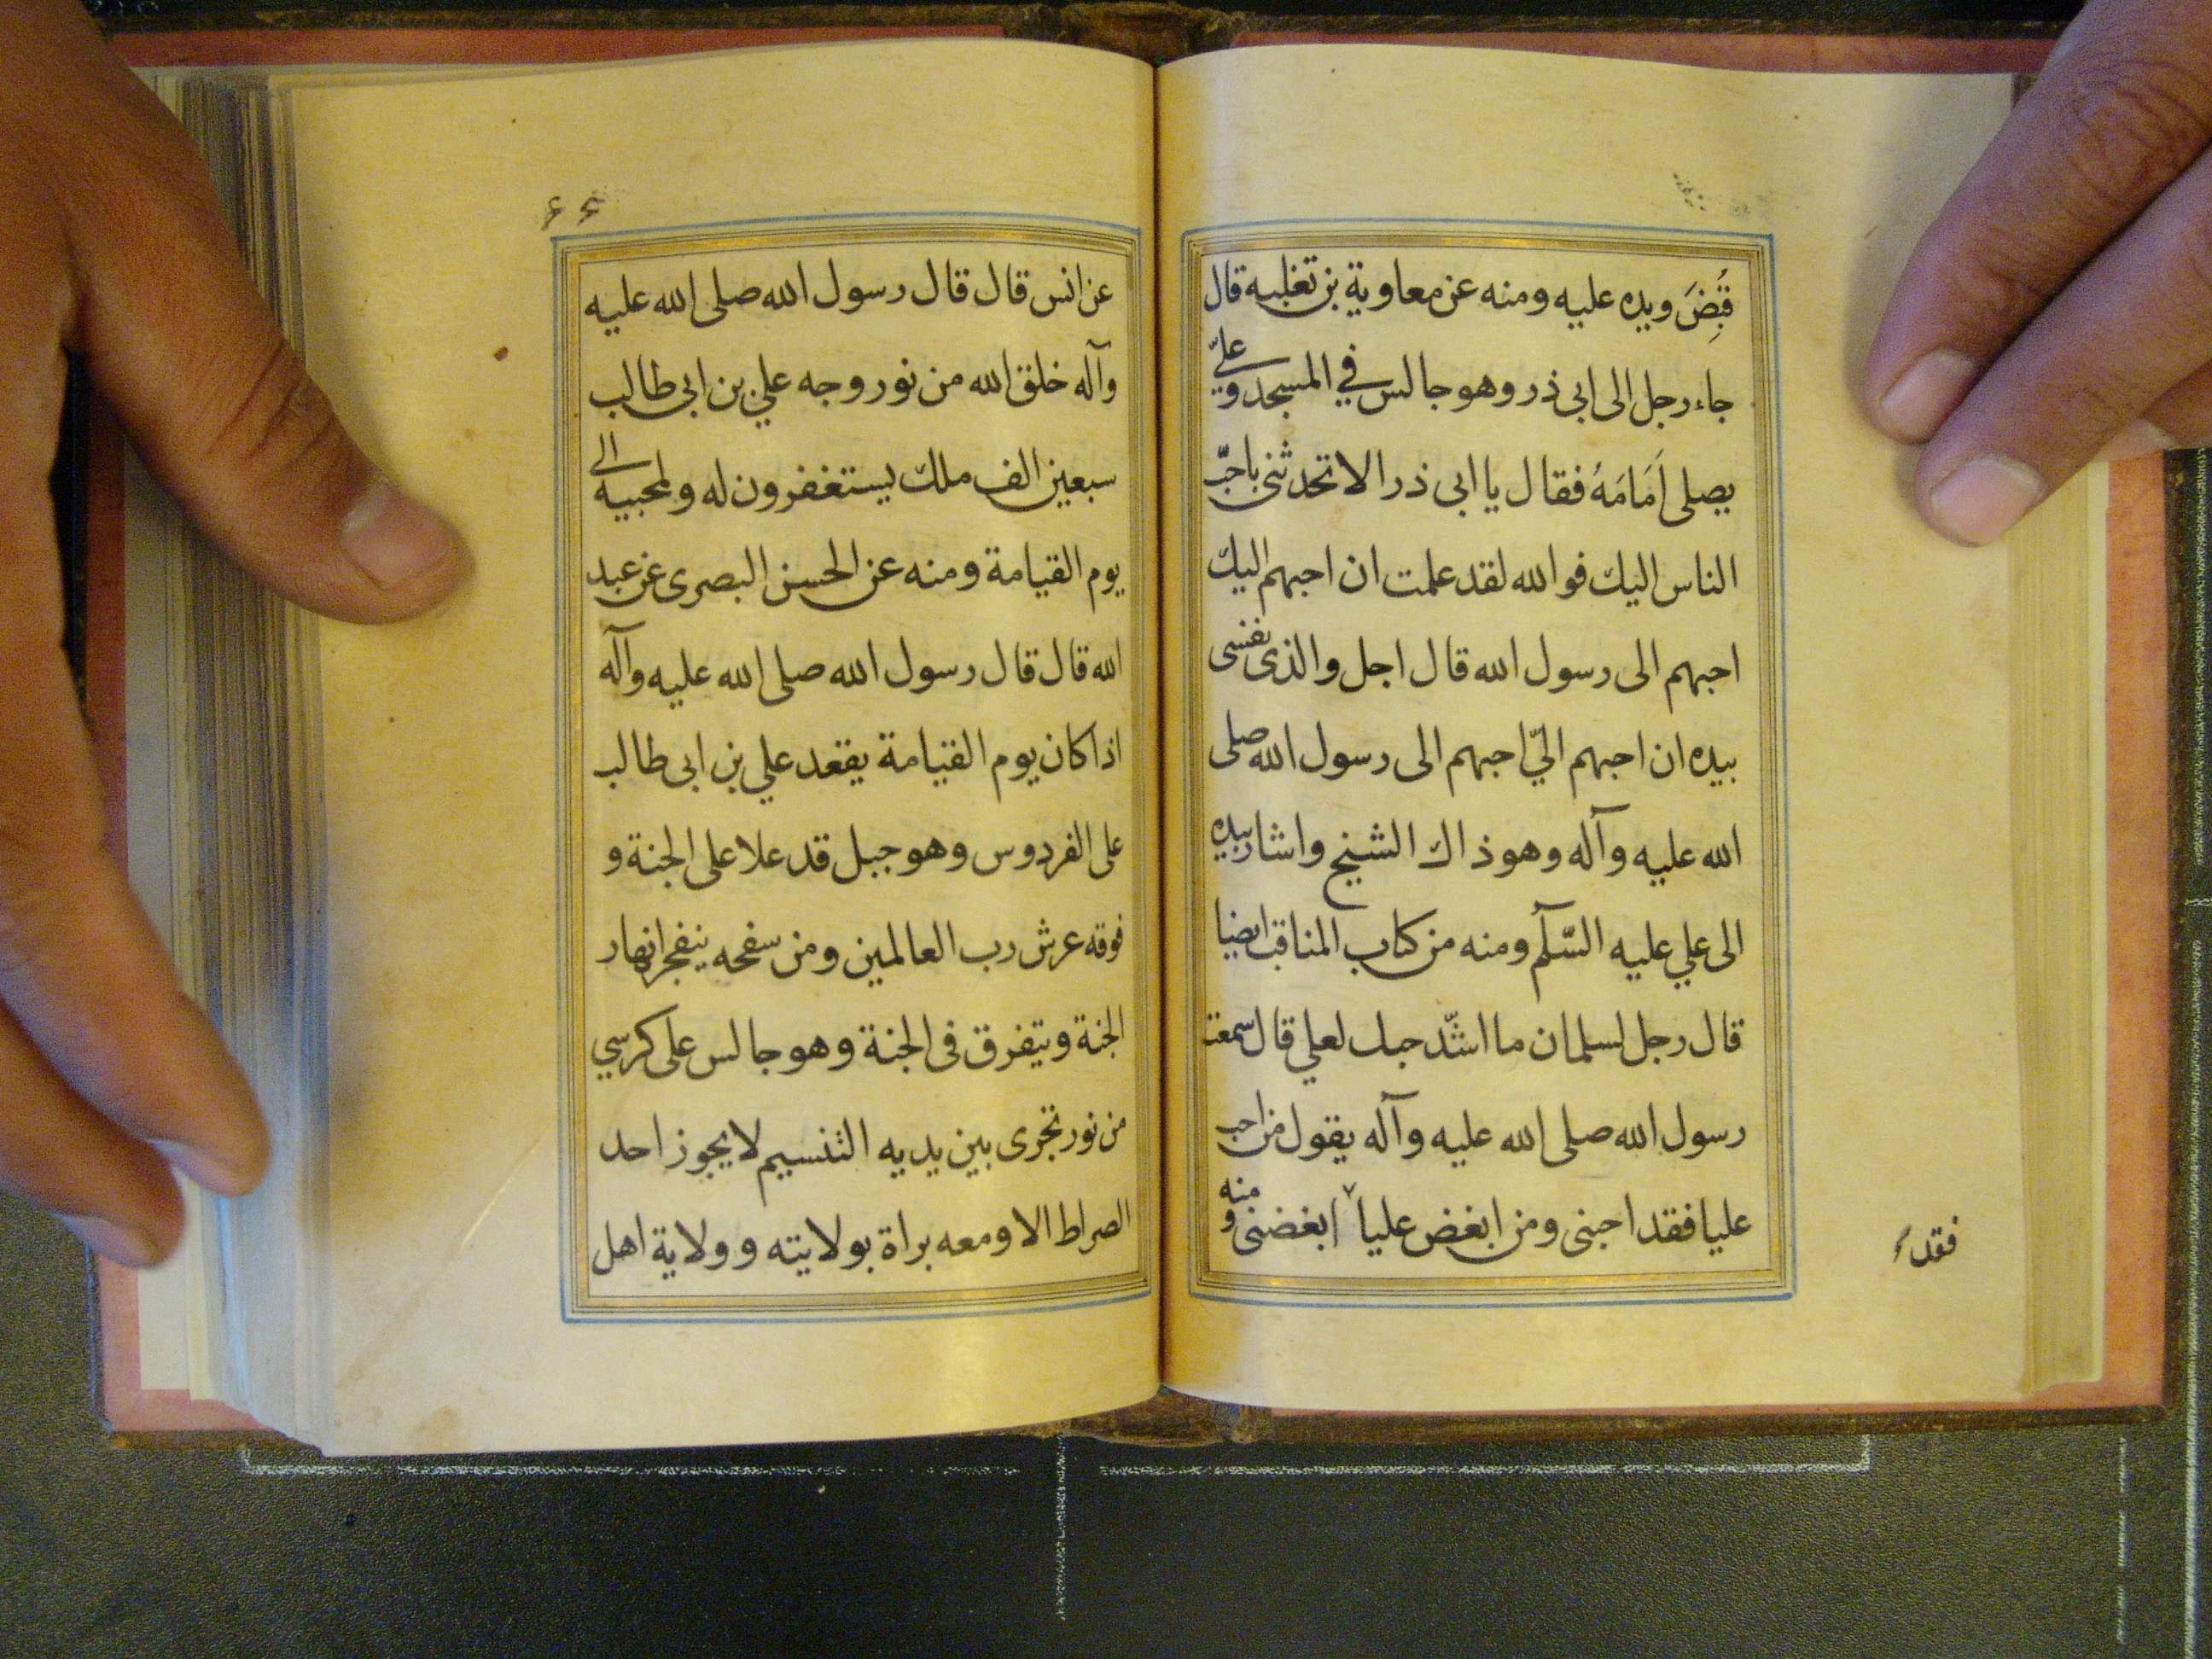 قُبِضَ ويده عليه ومنه عن معاوية بن تغلبه قال
جاء رجل الى ابى ذر وهو جالس في المسجد وعليّ
يصلى اَمَامَهُ فقال يا ابى ذر الا تحدثنى باحبّ
الناس اليك فوالله لقد علمت ان احبهم اليك
احبهم الى رسول الله قال اجل والذى نفسى
بيده ان احبهم اليّ احبهم الى رسول الله صلى
الله عليه وآله وهو ذاك الشيخ واشار بيده
الى علي عليه السّلم ومنه من كتاب المناقب ايضا
قال رجل لسلمان ما اشّد حبك لعلي قال سمعت
رسول الله صلى الله عليه وآله يقول من احب
عليا فقد احبنى ومن ابغض عليا ابغضنى ومنه
فقد
۶۶
عن انس قال قال رسول الله صلى الله عليه
وآله خلق الله من نور وجه علي بن ابى طالب
سبعين الف ملك يستغفرون له ولمحبيه الى
يوم القيامة ومنه عن الحسن البصرى عن عبد
الله قال قال رسول الله صلى الله عليه وآله
اذا كان يوم القيامة يقعد علي بن ابى طالب
على الفردوس وهو جبل قد علا على الجنة و
فوقه عرش رب العالمين ومن سفحه ينفجر انهار
الجنة ويتفرق فى الجنة وهو جالس على كرسي
من نور تجرى بين يديه التنسيم لا يجوز احد
الصراط الا ومعه براة بولايته وولاية اهل